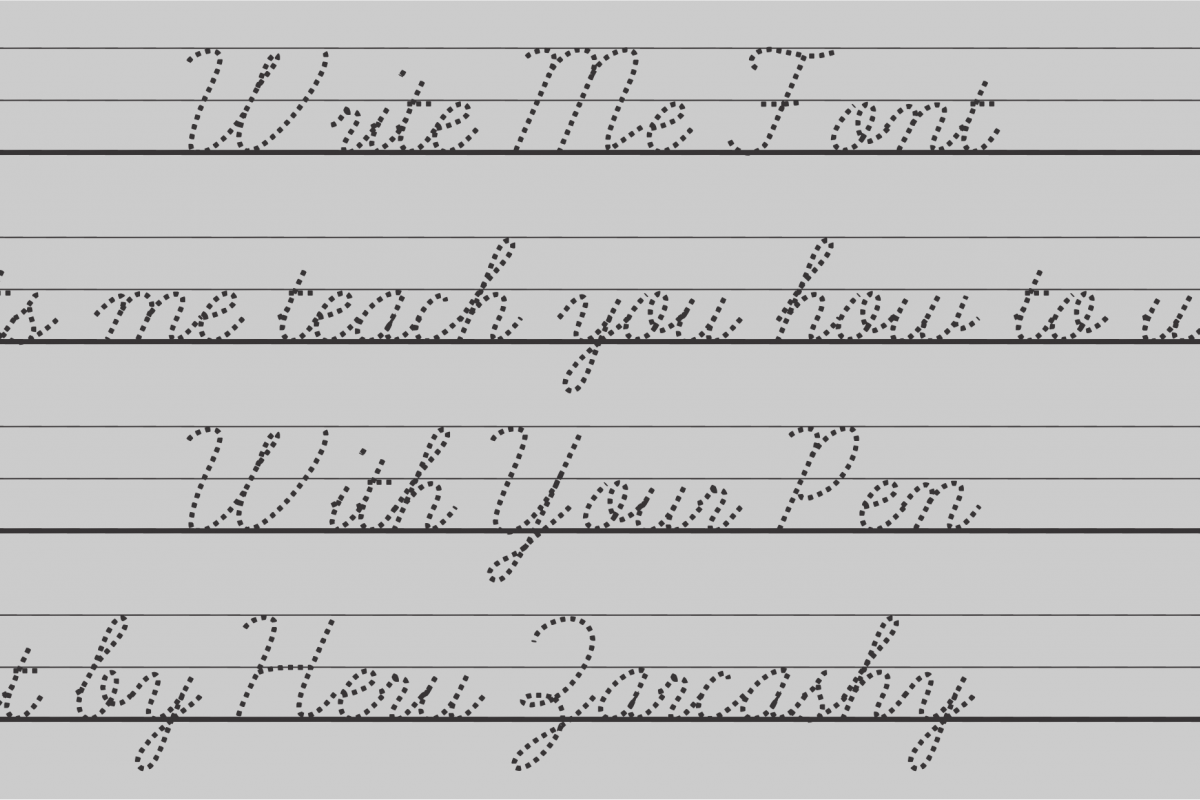 Write Me Font
me teach you how to
With Your Pen
by Heru Zarcashy